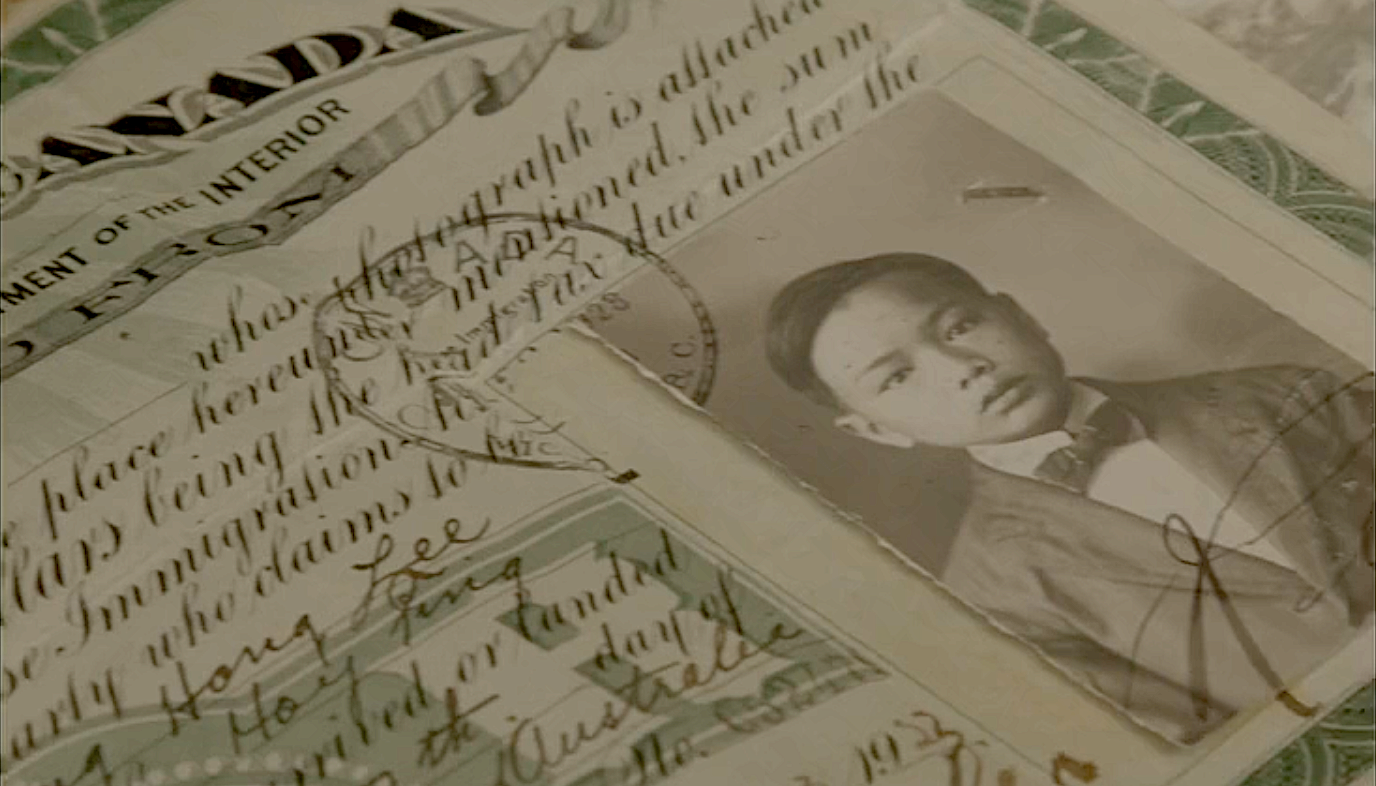 CANADA
MENT OF THE INTERIOR
FROM
whose photograph is attached
place hereunder mentioned, the sum
lars being the head tax due under the
Immigration
arly who claims to
Hong Lee
Hoy Ping
arrived or landed
th day of
Australia
No.
CANADA
Immigration